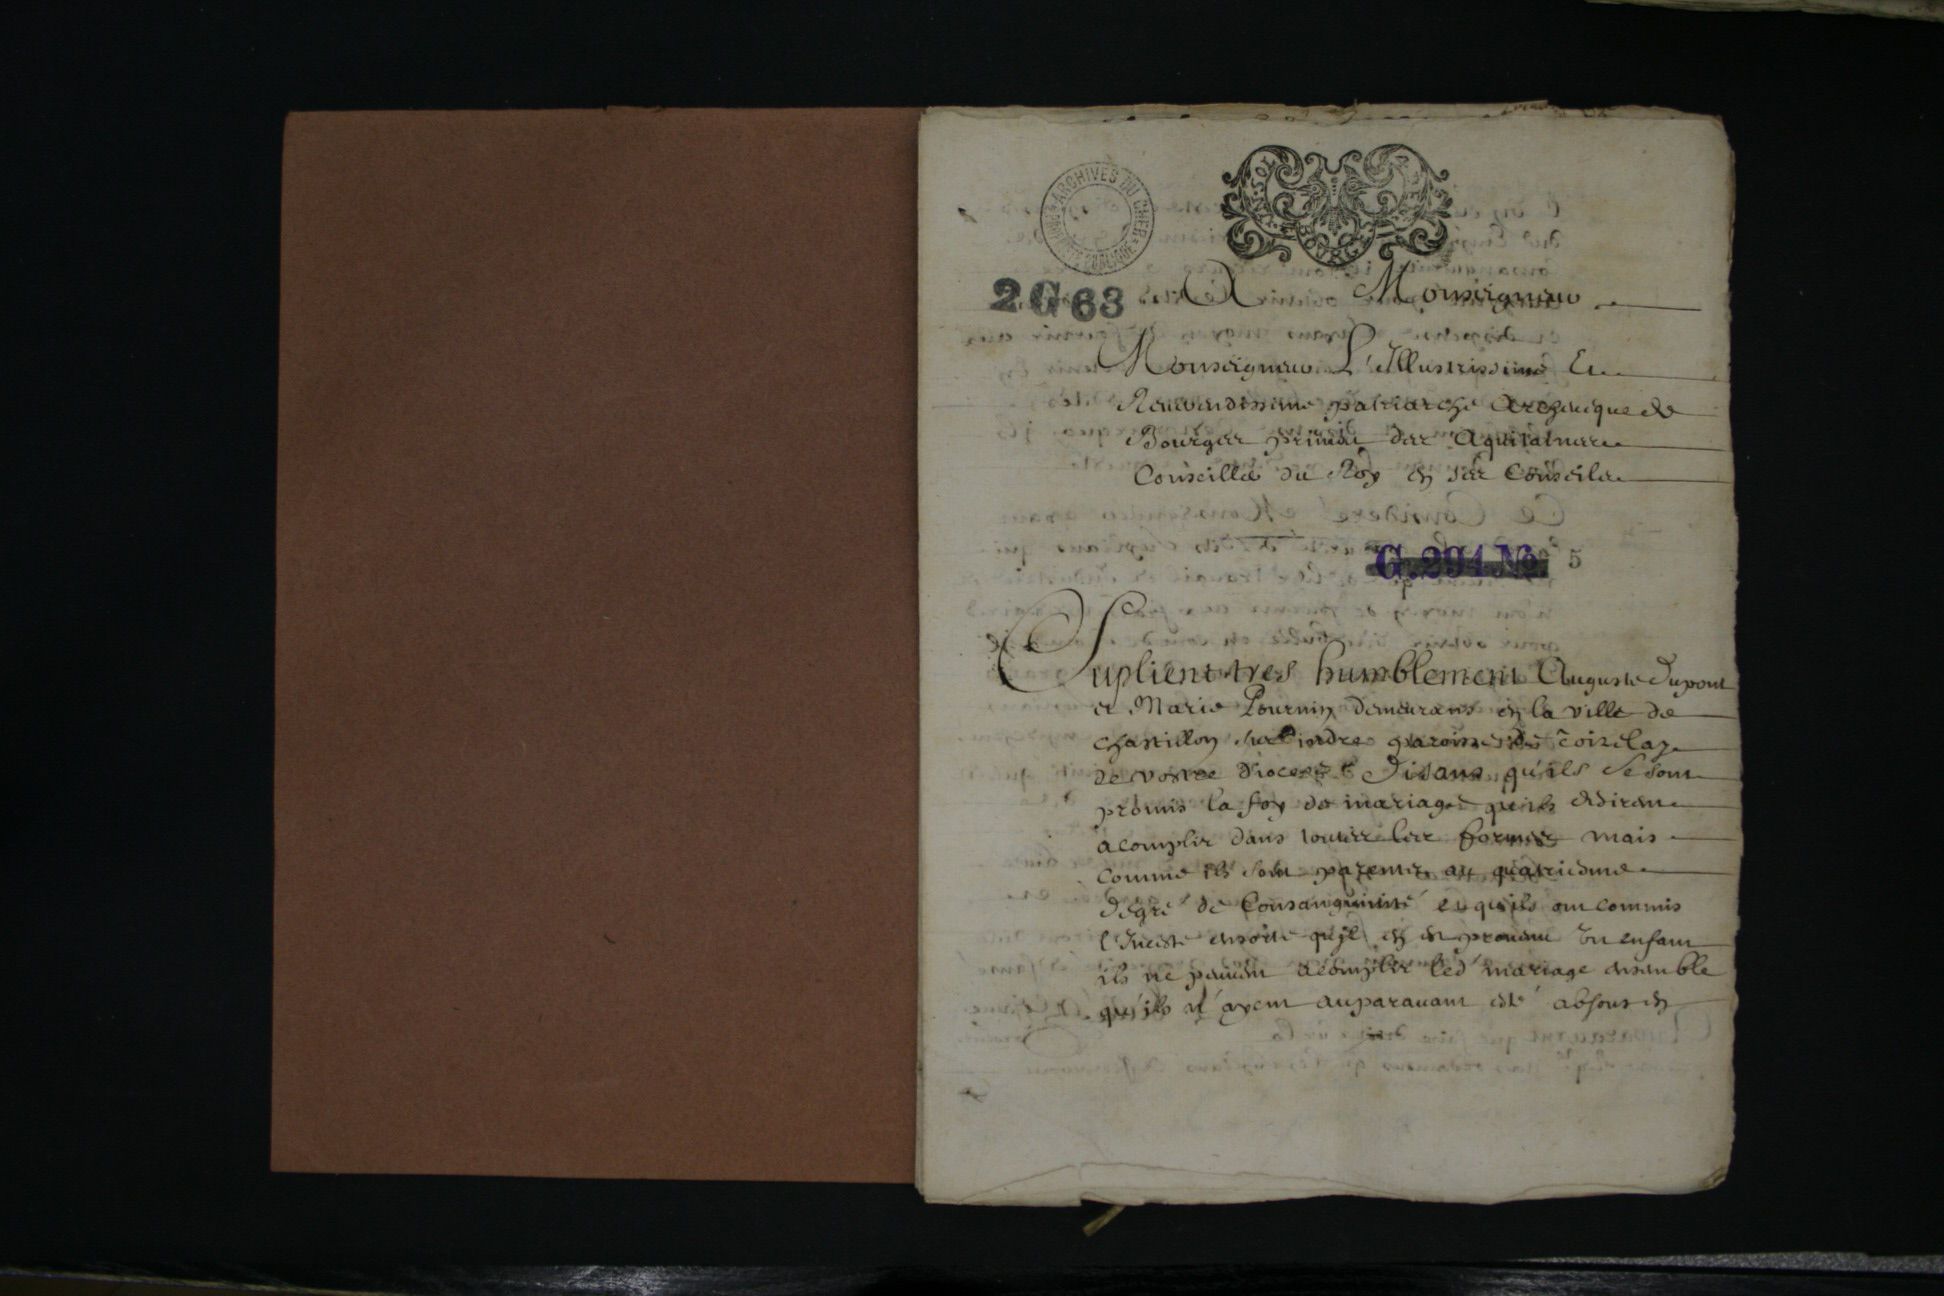 ARCHIVES DU CHER
PROPRIÉTÉ PUBLIQUE
2 G 63
A Monseigneur
Monseigneur L'Illustrissime Et
Reverendissime patriarche Archeuesque de
Bourges primat des Aquitaines
Conseiller du Roy en ses Conseils
G. 294 No. 5
Suplient tres humblement Auguste Dupont
et Marie Pournin demeurans en la ville de
chastillon sur Indre paroisse de
de vostre diocese Disans qu'ils se sont
promis la foy de mariage qu'ils desirent
acomplir dans toutes les formes mais
comme ils sont parents au quatriesme
degré de Consanguinité et qu'ils ont commis
l'Inceste ensorte qu'il en est prouenu un enfant
ils ne peuuent acomplir led mariage ensemble
qu'ils n'ayent auparauant esté absous et